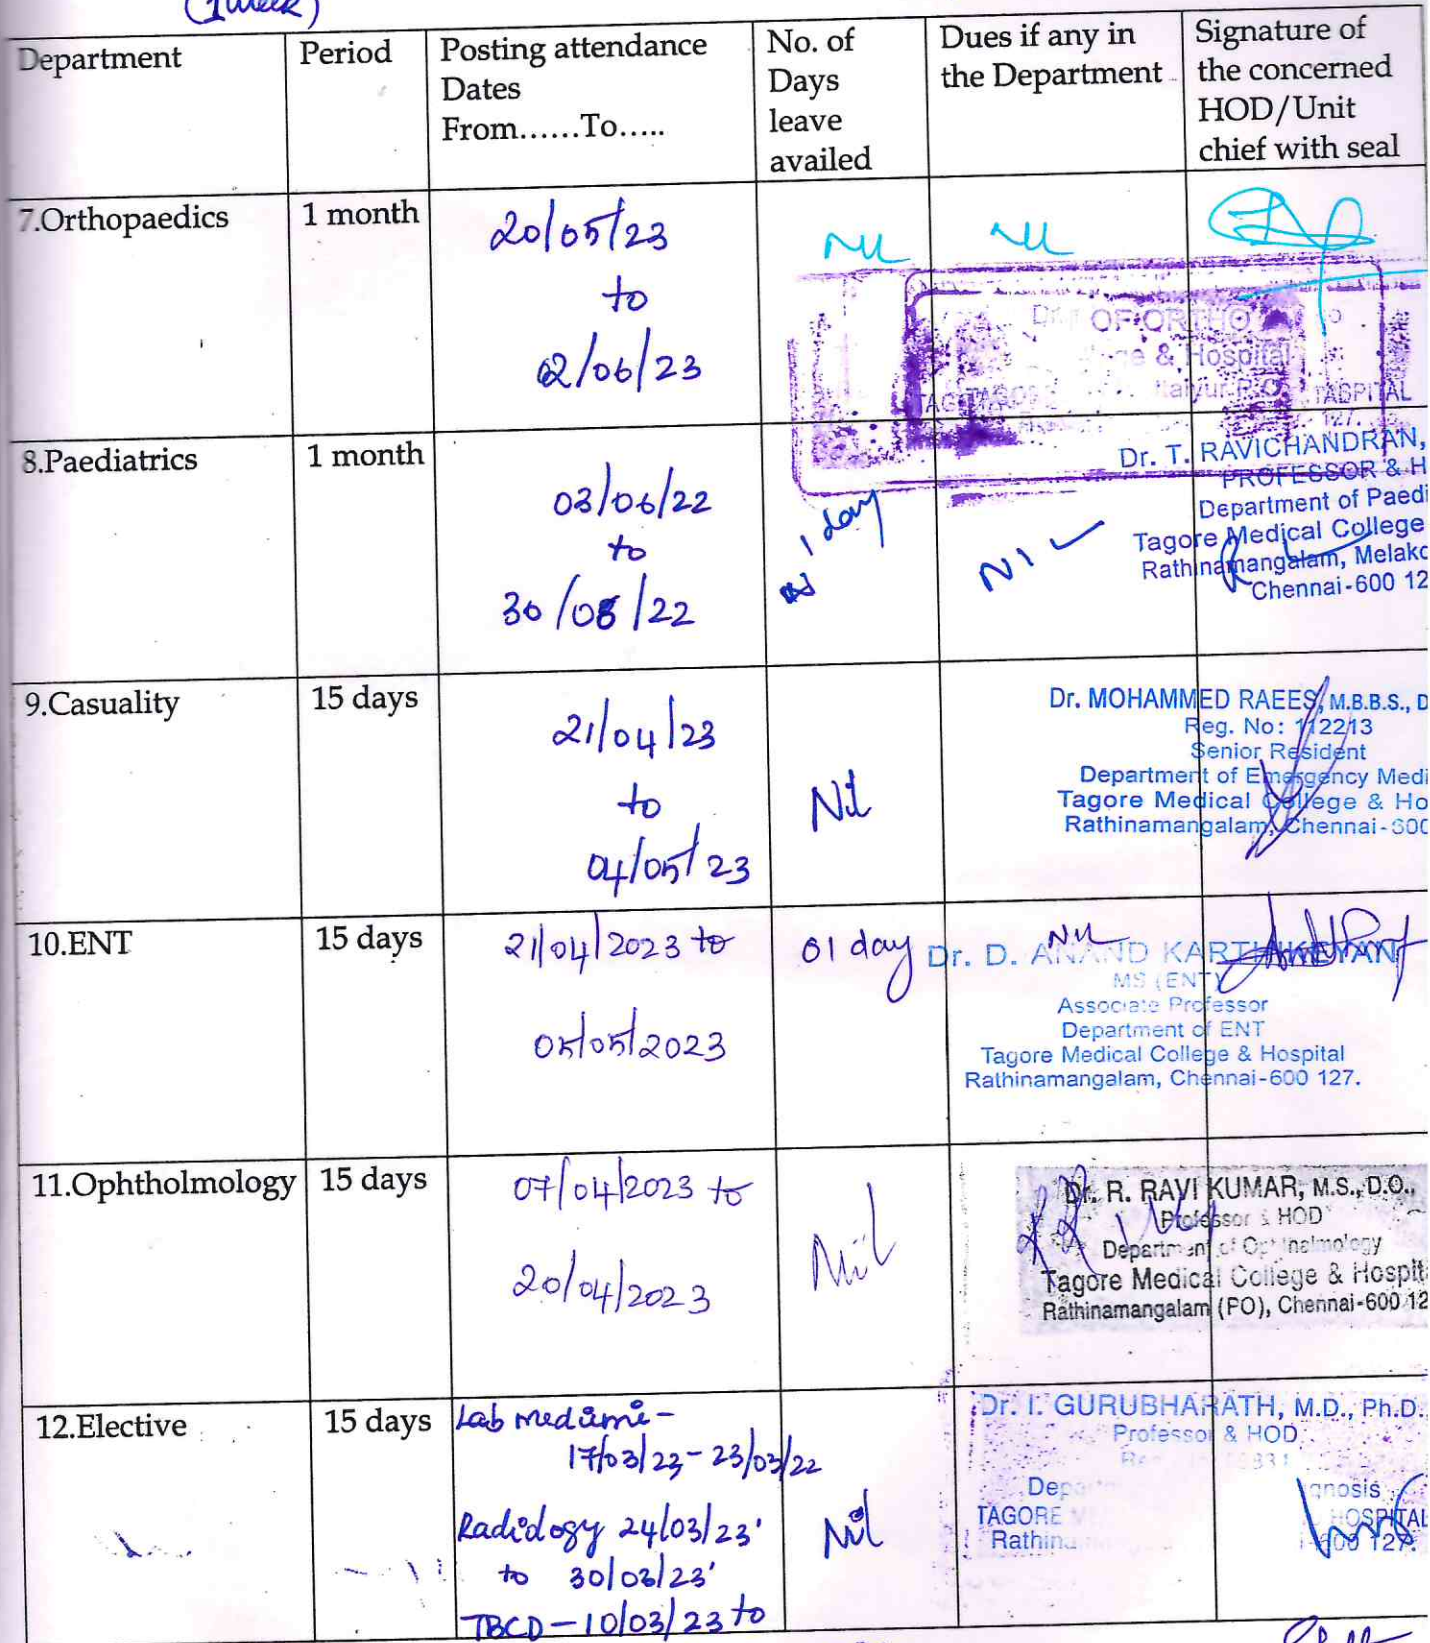 (1 week)
Department Period Posting attendance Dates From......To..... No. of Days leave availed Dues if any in the Department Signature of the concerned HOD/Unit chief with seal
7.Orthopaedics 1 month 20/05/23 Nil Nil
to
02/06/23
OF ORTHO
& Hospital
8.Paediatrics 1 month 03/06/22 1 day Nil
to
30/08/22
Dr. T. RAVICHANDRAN,
PROFESSOR & H
Department of Paedi
Tagore Medical College
Rathinamangalam, Melakc
Chennai-600 12
9.Casuality 15 days 21/04/23 Nil
to
04/05/23
Dr. MOHAMMED RAEES, M.B.B.S., D
Reg. No: 112213
Senior Resident
Department of Emergency Medi
Tagore Medical College & Ho
Rathinamangalam, Chennai-600
10.ENT 15 days 21/04/2023 to 01 day Nil
05/05/2023
Dr. D. ANAND KARTHIKEYAN
MS (ENT)
Associate Professor
Department of ENT
Tagore Medical College & Hospital
Rathinamangalam, Chennai-600 127.
11.Ophtholmology 15 days 07/04/2023 to Nil
20/04/2023
Dr. R. RAVI KUMAR, M.S., D.O.,
Professor & HOD
Department of Ophthalmology
Tagore Medical College & Hospit
Rathinamangalam (PO), Chennai-600 12
12.Elective 15 days Lab medicine - Nil
17/03/23 - 23/03/22
Radiology 24/03/23
to 30/03/23
TBCD - 10/03/23 to
Dr. I. GURUBHARATH, M.D., Ph.D.
Professor & HOD
TAGORE
HOSPITAL
600 127.